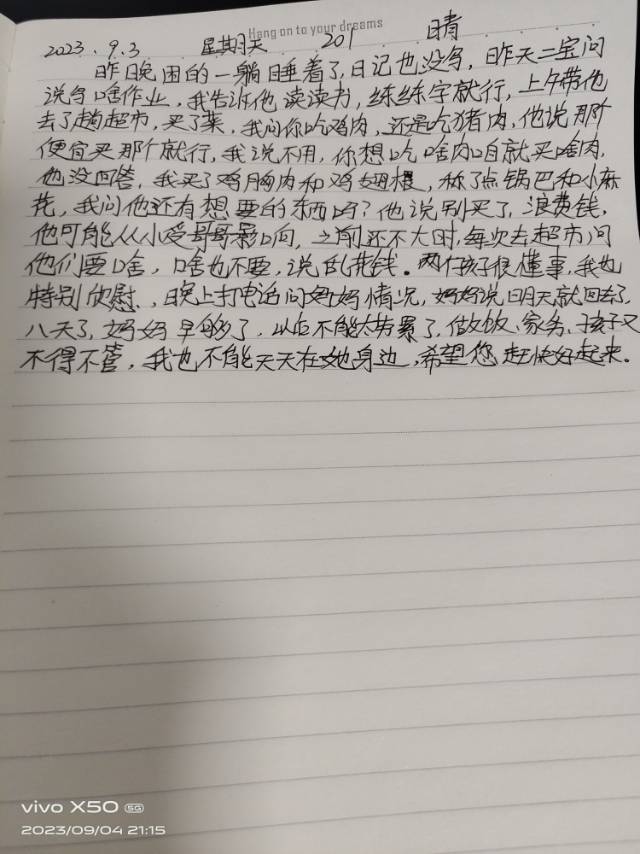 Hang on to your dreams
2023.9.3 星期天 201 晴
昨晚困的一躺睡着了,日记也没写,昨天二宝问
说写啥作业,我告诉他读读书,练练字就行,上午带他
去了趟超市,买了菜,我问你吃鸡肉,还是吃猪肉,他说那个
便宜买那个就行,我说不用,你想吃啥肉咱就买啥肉,
他没回答,我买了鸡胸肉和鸡翅根,称了点锅巴和小麻
花,我问他还有想要的东西吗?他说别买了,浪费钱,
他可能从小受哥哥影响,之前还不大时,每次去超市问
他们要啥,啥也不要,说乱花钱。两个孩子很懂事,我也
特别欣慰,晚上打电话问妈妈情况,妈妈说明天就回去了,
八天了,妈妈早够了,以后不能太劳累了,做饭、家务、孩子又
不得不管,我也不能天天在她身边,希望您赶快好起来。
vivo X50 5G
2023/09/04 21:15